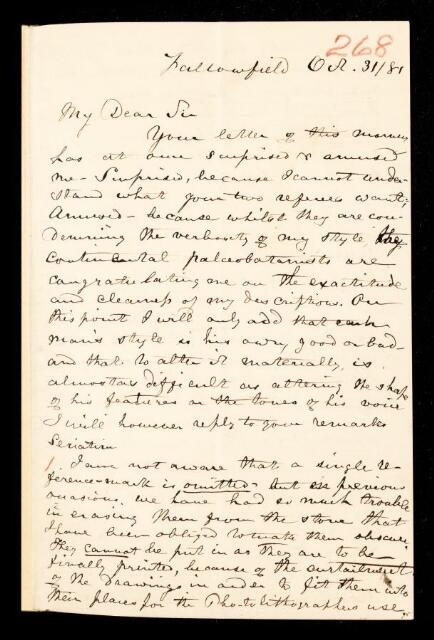 268
Fallowfield Oct. 31/81
My Dear Sir
Your letter of this morning
has at once surprised & amused
me - Surprised, because I cannot under-
stand what your two referees want;
Amused - because whilst they are con-
demning the verbosity of my style the
continental palaeobotanists are
congratulating me on the exactitude
and clearness of my descriptions. On
this point I will only add that each
man's style is his own, good or bad -
and that to alter it materially, is
almost as difficult as altering the shape
of his features or the tones of his voice
I will however reply to your remarks
Seriatim
1. I am not aware that a single re-
ference-mark is omitted - but on previous
occasions we have had so much trouble
in erasing them from the stone that
I have been obliged to make them obscure.
They cannot be put in as they are to be
finally printed, because of the curtailment
of the Drawings in order to fit them into
their places for the Photolithographers use